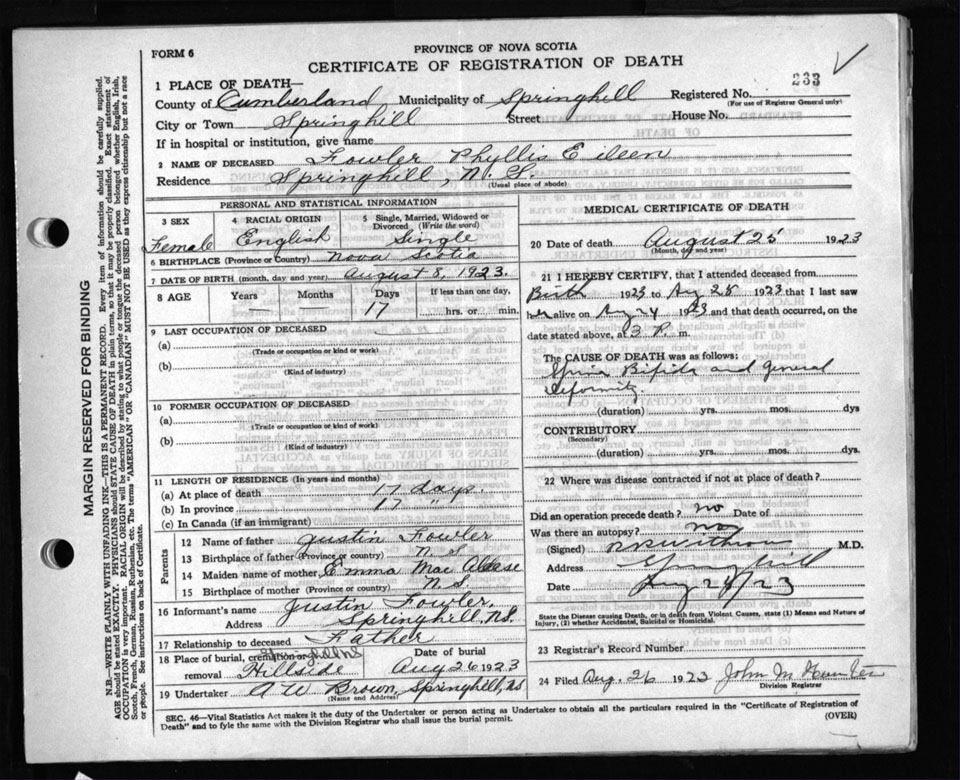 FORM 6
PROVINCE OF NOVA SCOTIA
CERTIFICATE OF REGISTRATION OF DEATH
1 PLACE OF DEATH—
Registered No. 233
(For use of Registrar General only)
County of Cumberland Municipality of Springhill
City or Town Springhill Street House No.
If in hospital or institution, give name
2 NAME OF DECEASED Fowler Phyllis Eileen
Residence Springhill, N.S.
(Usual place of abode)
PERSONAL AND STATISTICAL INFORMATION
3 SEX 4 RACIAL ORIGIN 5 Single, Married, Widowed or Divorced (Write the word)
Female English Single
6 BIRTHPLACE (Province or Country) Nova Scotia
7 DATE OF BIRTH (month, day and year) August 8, 1923.
8 AGE Years Months Days If less than one day,
17 hrs. or min.
9 LAST OCCUPATION OF DECEASED
(a)
(Trade or occupation or kind or work)
(b)
(Kind of industry)
10 FORMER OCCUPATION OF DECEASED
(a)
(Trade or occupation or kind of work)
(b)
(Kind of industry)
11 LENGTH OF RESIDENCE (In years and months)
(a) At place of death 17 days.
(b) In province 17 "
(c) In Canada (if an immigrant)
Parents
12 Name of father Justin Fowler
13 Birthplace of father (Province or country) N.S.
14 Maiden name of mother Emma Mac
15 Birthplace of mother (Province or country) N.S.
16 Informant's name Justin Fowler,
Address Springhill, N.S.
17 Relationship to deceased Father
18 Place of burial, cremation or removal Hillside
Date of burial Aug 26 1923
19 Undertaker A W Brown, Springhill, NS
(Name and Address)
MEDICAL CERTIFICATE OF DEATH
20 Date of death August 25 1923
(Month, day and year)
21 I HEREBY CERTIFY, that I attended deceased from
Birth 1923 to Aug 25 1923 that I last saw
her alive on Aug 24 1923 and that death occurred, on the
date stated above, at 3 P. m.
The CAUSE OF DEATH was as follows:
Spina Bifida and general
deformity
(duration) yrs. mos. dys
CONTRIBUTORY
(Secondary)
(duration) yrs. mos. dys
22 Where was disease contracted if not at place of death?
Did an operation precede death? no Date of
Was there an autopsy? no
(Signed) M.D.
Address Springhill
Date Aug /23
State the Disease causing Death, or in death from Violent Causes, state (1) Means and Nature of
Injury, (2) whether Accidental, Suicidal or Homicidal.
23 Registrar's Record Number
24 Filed Aug. 26 1923 John M
Division Registrar
SEC. 46—Vital Statistics Act makes it the duty of the Undertaker or person acting as Undertaker to obtain all the particulars required in the "Certificate of Registration of
Death" and to fyle the same with the Division Registrar who shall issue the burial permit.
(OVER)
MARGIN RESERVED FOR BINDING
N.B.—WRITE PLAINLY WITH UNFADING INK—THIS IS A PERMANENT RECORD. Every item of information should be carefully supplied.
AGE should be stated EXACTLY. PHYSICIANS should STATE CAUSE OF DEATH in plain terms, so that it may be properly classified. Exact statement of
OCCUPATION is very important. RACIAL ORIGIN will be described by stating to what people or tongue the deceased person belonged whether English, Irish,
Scotch, French, German, Russian, Ruthenian, etc. The terms "AMERICAN" OR "CANADIAN" MUST NOT BE USED as they express citizenship but not a race
or people. See instructions on back of Certificate.